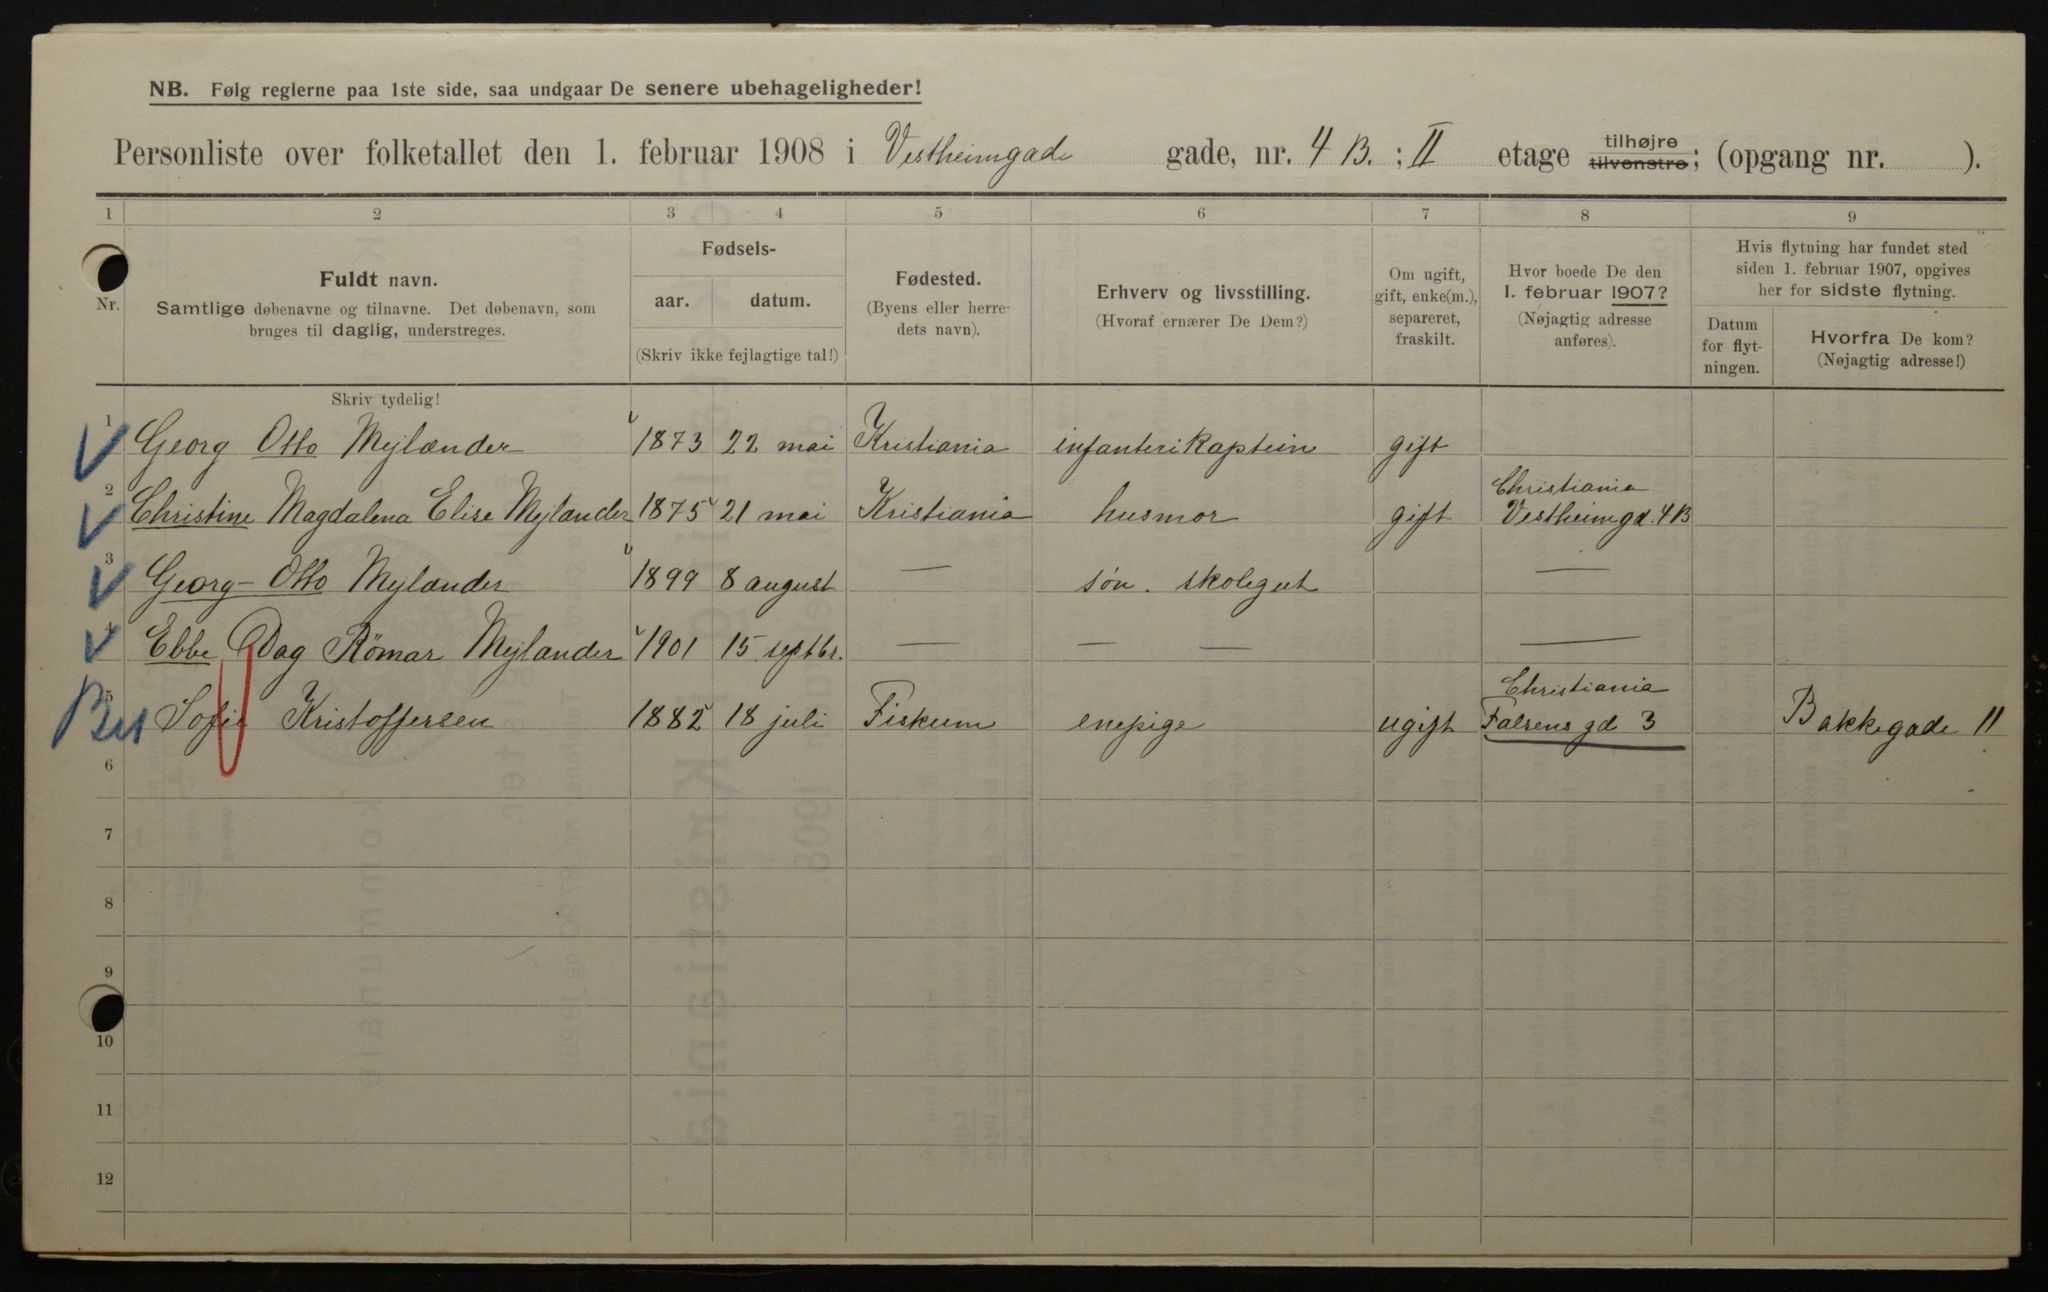 NB. Følg reglerne paa 1ste side, saa undgaar De senere ubehageligheder!
Personliste over folketallet den 1. februar 1908 i Vestheimgade gade, nr. 4 B. ; II etage tilhøjre tilvenstre; (opgang nr. ).
1 2 3 4 5 6 7 8 9
Nr.
Fuldt navn.
Samtlige døbenavne og tilnavne. Det døbenavn, som
bruges til daglig, understreges.
Skriv tydelig!
Fødsels-
aar. datum.
(Skriv ikke fejlagtige tal!)
Fødested.
(Byens eller herre-
dets navn).
Erhverv og livsstilling.
(Hvoraf ernærer De Dem?)
Om ugift,
gift, enke(m.),
separeret,
fraskilt.
Hvor boede De den
1. februar 1907?
(Nøjagtig adresse
anføres).
Hvis flytning har fundet sted
siden 1. februar 1907, opgives
her for sidste flytning.
Datum
for flyt-
ningen.
Hvorfra De kom?
(Nøjagtig adresse!)
1 Georg Otto Mejlænder 1873 22 mai Kristiania infanterikaptein gift
Christiania
2 Christine Magdalena Elise Mejlænder 1875 21 mai Kristiania husmor gift Vestheimgd. 4B
3 Georg-Otto Mejlænder 1899 8 august — søn. skolegut —
4 Ebbe Dag Römar Mejlænder 1901 15 septbr. — — — —
Christiania
Bet 5 Sofie Kristoffersen 1882 18 juli Fiskum enepige ugift Falsens gd 3 Bakkegade 11
6
7
8
9
10
11
12